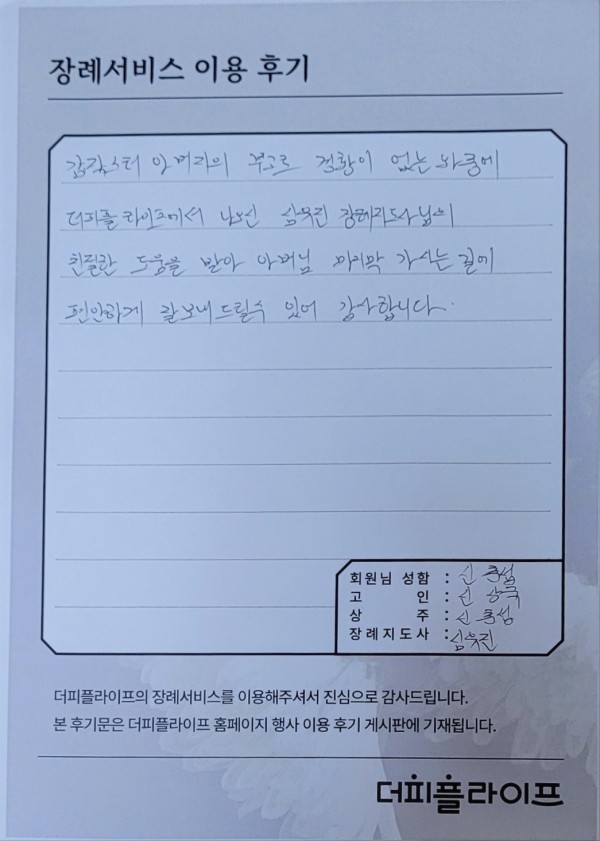 장례서비스 이용 후기
갑작스런 아버지의 부고로 경황이 없는 와중에
더피플라이프에서 나오신 심욱진 장례지도사님의
친절한 도움을 받아 아버님 마지막 가시는 길에
편안하게 잘 보내드릴수 있어 감사합니다.
회원님 성함 : 신동섭
고 인 : 신상국
상 주 : 신동섭
장례지도사 : 심욱진
더피플라이프의 장례서비스를 이용해주셔서 진심으로 감사드립니다.
본 후기문은 더피플라이프 홈페이지 행사 이용 후기 게시판에 기재됩니다.
더피플라이프